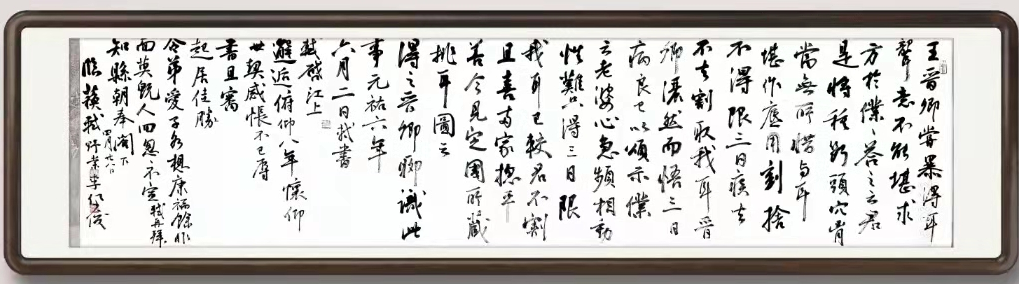 王晉卿嘗暴得耳
聾意不能堪求
方於僕〻答之云君
是將種斷頭穴胷
當無所惜兩耳
堪作底用割捨
不得限三日疾去
不去割取我耳晉
卿灑然而悟三日
病良已以頌示僕
云老婆心急頻相勸
性難只得三日限
我耳已較君不割
且喜兩家總平
善今見定國所藏
挑耳圖云
得之晉卿聊識此
事元祐六年
六月二日軾書
軾啓江上
邂逅俯仰八年懷仰
世契感悵不已辱
書且審
起居佳勝
令弟愛子各想康福餘非
面莫既人回忽〻不宣軾再拜
知縣朝奉閣下
臨蘇軾